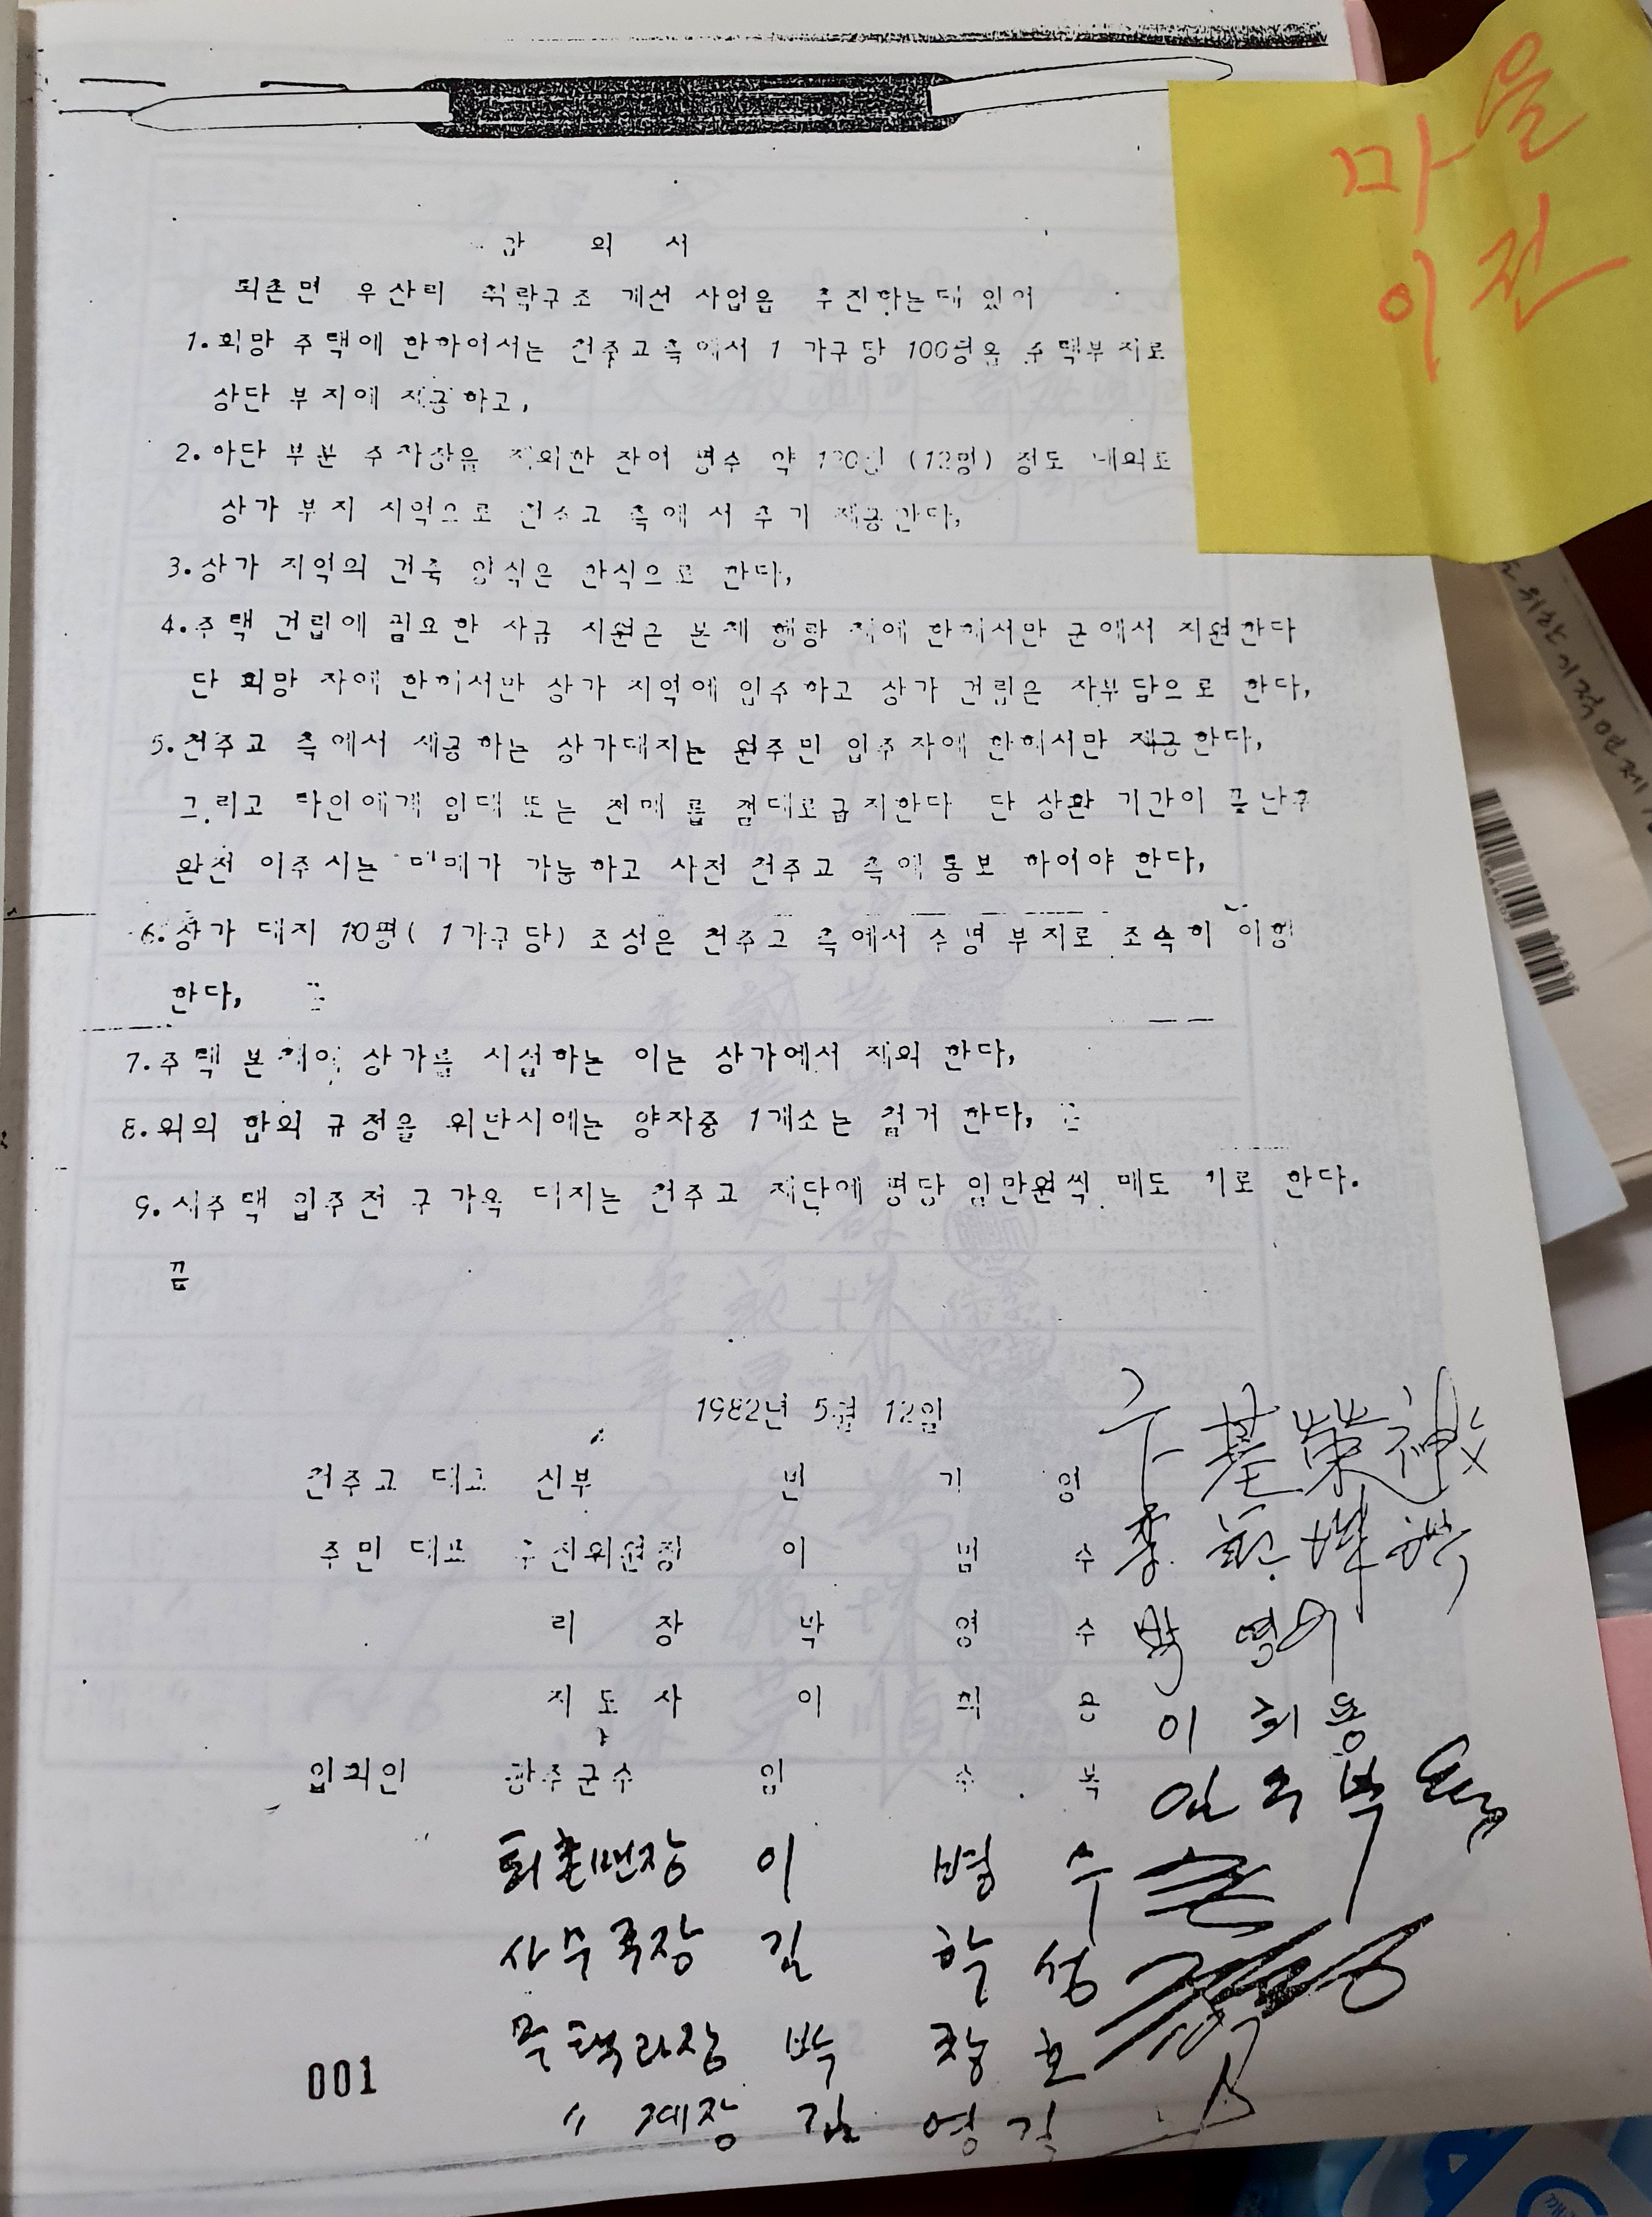 마을
이전
합 의 서
퇴촌면 우산리 취락구조 개선 사업을 추진하는데 있어
1. 희망 주택에 한하여서는 천주교측에서 1 가구당 100평을 주택부지로
상단 부지에 제공하고,
2. 하단 부분 주차장을 제외한 잔여 평수 약 120평 (12명) 정도 내외로
상가 부지 지역으로 천주교 측에서 추가 제공한다,
3. 상가 지역의 건축 양식은 한식으로 한다,
4. 주택 건립에 필요한 자금 지원은 본체 행랑 채에 한해서만 군에서 지원한다
단 희망 자에 한해서만 상가 지역에 입주하고 상가 건립은 자부담으로 한다,
5. 천주교 측에서 제공하는 상가대지는 원주민 입주자에 한해서만 제공한다,
그리고 타인에게 임대 또는 전매를 절대로금지한다 단 상환 기간이 끝난후
완전 이주시는 매매가 가능하고 사전 천주교 측에 통보 하여야 한다,
6. 상가 대지 10평( 1가구당) 조성은 천주교 측에서 수명 부지로 조속히 이행
한다,
7. 주택 본체에 상가를 시설하는 이는 상가에서 제외 한다,
8. 위의 합의 규정을 위반시에는 양자중 1개소는 철거 한다,
9. 새주택 입주전 구 가옥 대지는 천주교 재단에 평당 일만원씩 매도 키로 한다.
끝
1982년 5월 12일
천주교 대표 신부 변 기 영 卞 基 榮 神父
주민 대표 추진위원장 이 범 수 李 範
리 장 박 영 수 박 영수
지 도 사 이 희 용 이 희 용
입회인 광주군수 임 수 복 임 수 복
퇴촌면장 이 병 수
사무국장 김 학 성
주택과장 박 창 호
〃 계장 김 영 길
001